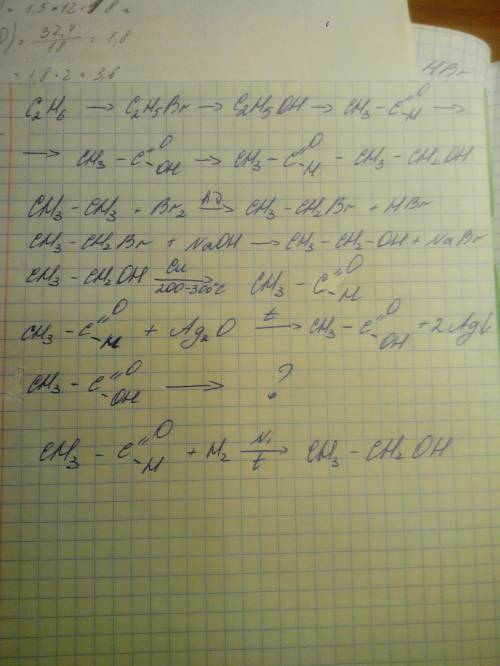 = 1,5 • 12 = 18 =
) = 32,4 / 18 = 1,8
= 1,8 • 2 = 3,6
HBr
C2H6 → C2H5Br → C2H5OH → CH3 – C =O –H →
→ CH3 – C =O –OH → CH3 – C =O –H – CH3 – CH2OH
CH3 – CH3 + Br2 → CH3 – CH2Br + HBr
CH3 – CH2Br + NaOH → CH3 – CH2 – OH + NaBr
CH3 – CH2OH Cu → 200-300°C CH3 – C =O –H
CH3 – C =O –H + Ag2O t → CH3 – C =O –OH + 2Ag↓
CH3 – C =O –OH → ?
CH3 – C =O –H + H2 Ni → t CH3 – CH2OH